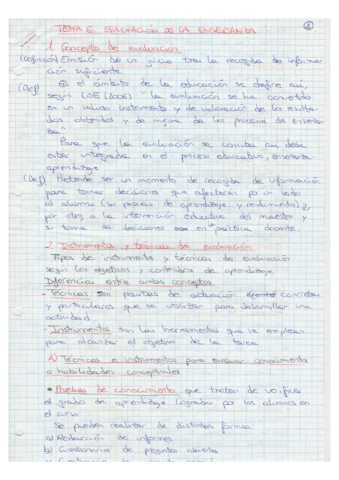 ①
TEMA 6. EVALUACIÓN DE LA ENSEÑANZA
1. Concepto de evaluación
(Definición) Emisión de un juicio tras la recogida de informa-
ción suficiente.
En el ámbito de la educación se define así,
(Def) según LOE (2006) "la evaluación se ha convertido
en un valioso instrumento y de valoración de los resulta-
dos obtenidos y de mejora de los procesos de enseñan-
za."
Para que la evaluación se conciba así debe
estar integrada en el proceso educativo, enseñanza-
aprendizaje.
(Def) Pretende ser un momento de recogida de información
para tomar decisiones que afectarán por un lado
al alumno (su proceso de aprendizaje y rendimiento) y,
por otro, a la intervención educativa del maestro y
su toma de decisiones en práctica docente.
2. Instrumentos y técnicas de evaluación
Tipos de instrumentos y técnicas de evaluación
según los objetivos y contenidos de aprendizaje.
Diferencias entre ambos conceptos.
- Técnicas son pautas de actuación concretas
y particulares que se utilizan para desarrollar una
actividad.
- Instrumentos son las herramientas que se emplean
para alcanzar el objetivo de la tarea.
A) Técnicas e instrumentos para evaluar conocimientos
o habilidades conceptuales
• Pruebas de conocimiento que tratan de verificar
el grado de aprendizaje logrados por los alumnos en
el curso.
Se pueden realizar de distintas formas:
a) Redacción de informes
b) Cuestionarios de preguntas abiertas